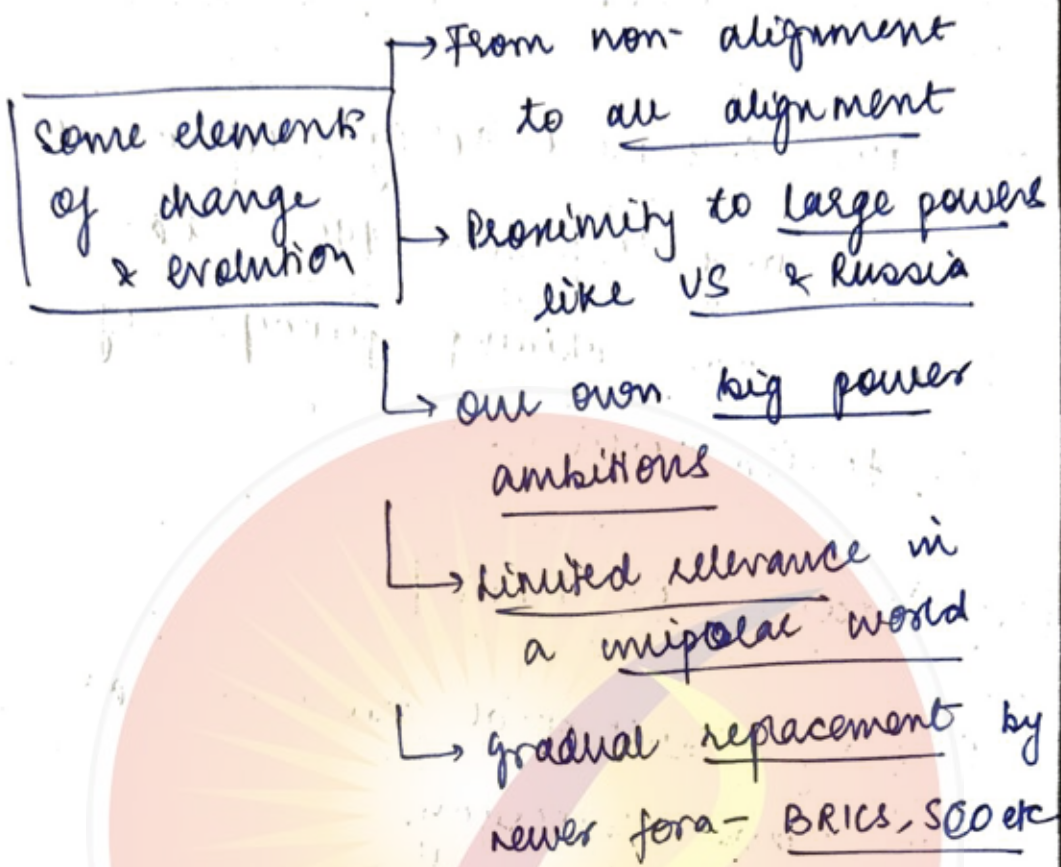 Some elements
of change
& evolution
→ From non-alignment
to all alignment
→ Proximity to large powers
like US & Russia
→ our own big power
ambitions
→ Limited relevance in
a unipolar world
→ gradual replacement by
newer fora - BRICS, SCO etc